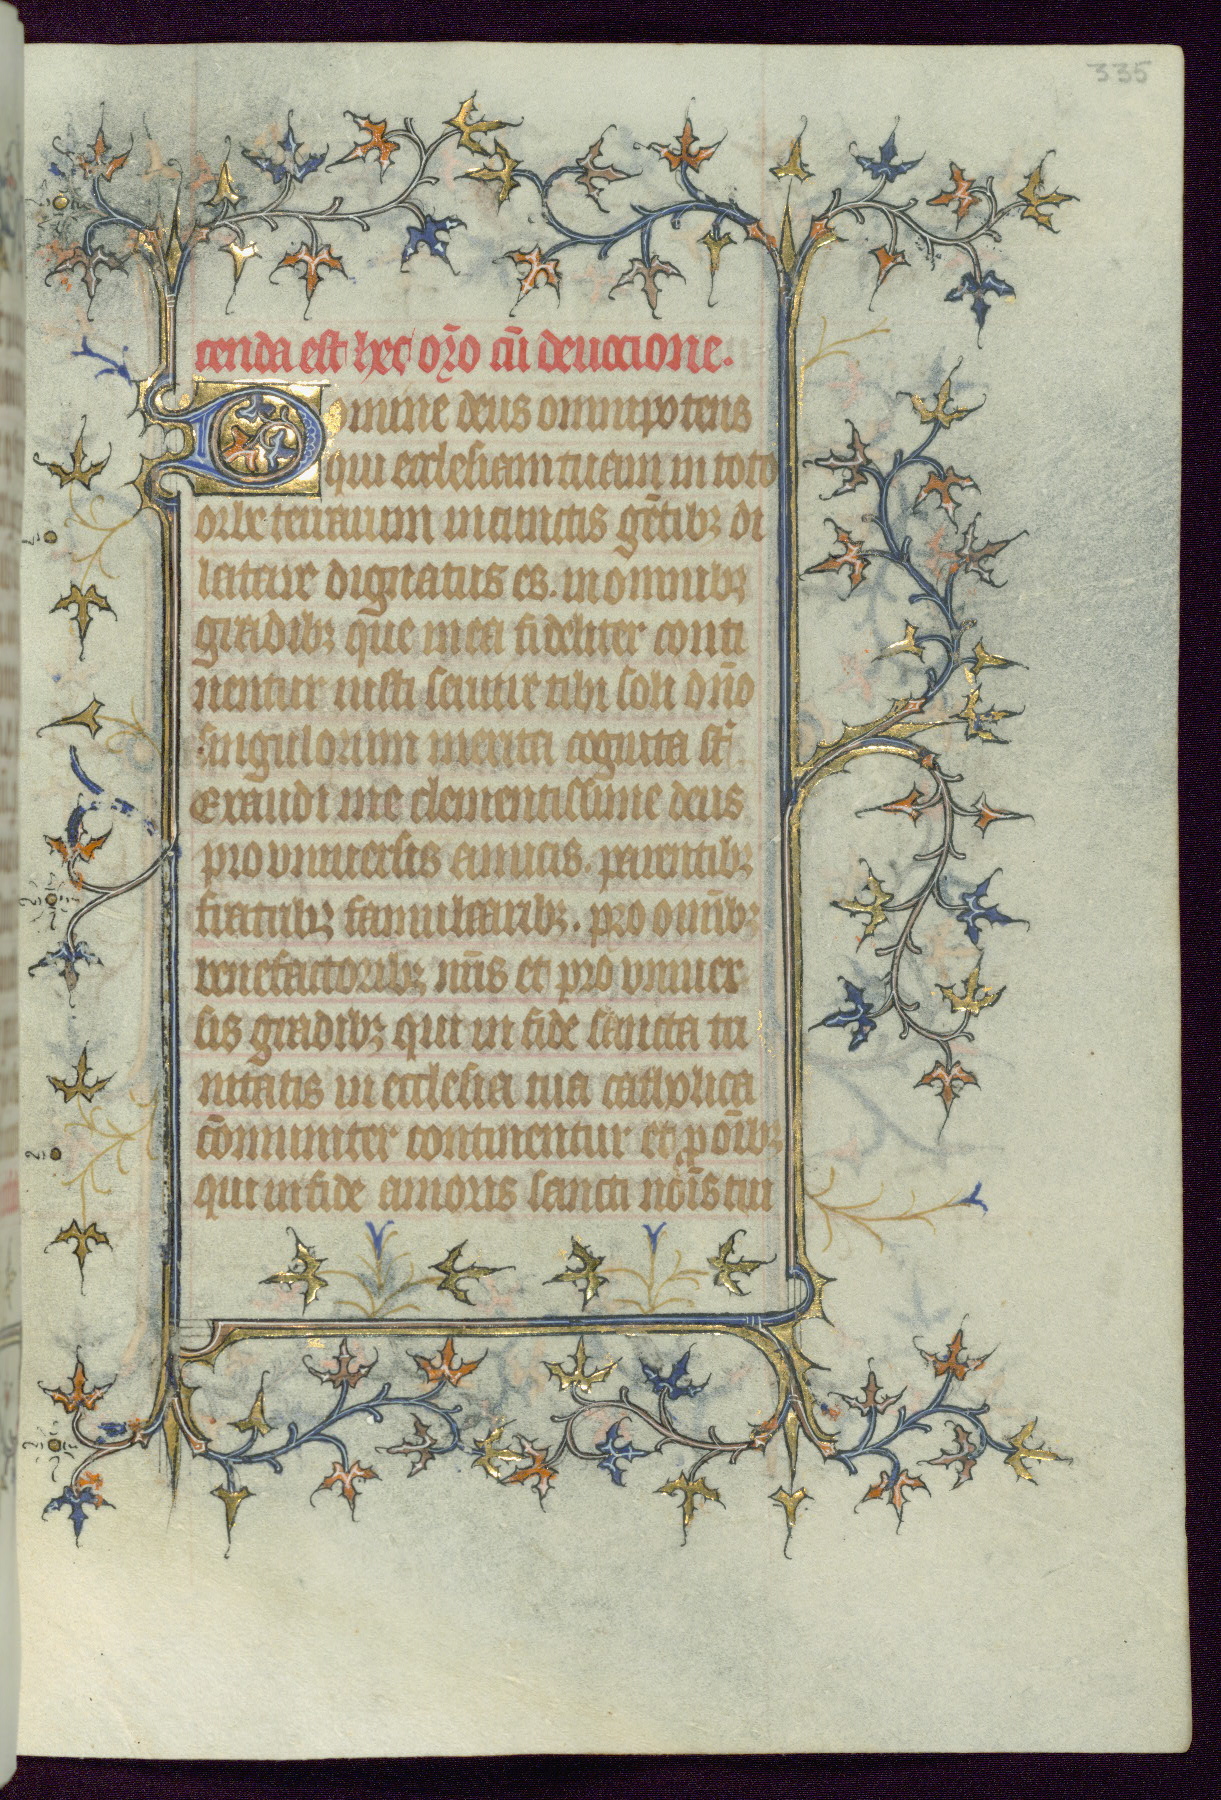 335
cenda est hec or̄o cū deuocione.
Domine deus omnipotens
qui ecclesiam tuam in toto
orbe terrarum in cunctis gētibꝫ di
latare dignatus es. in omnibꝫ
gradibꝫ que in ea fideliter conti
nentur iusti seruire tibi soli dn̄o
singulorum merita cognita st̄
Exaudi me clementissime deus
pro vniuersis amicis. parentibꝫ
fratribꝫ familiaribꝫ. pro omībꝫ
benefactoribꝫ mīs et pro vniuer
sis gradibꝫ qui in fide sancta tri
nitatis in ecclesia tua catholica
cōmuniter continentur et p oībꝫ
qui in fide amoris sancti noīs tui